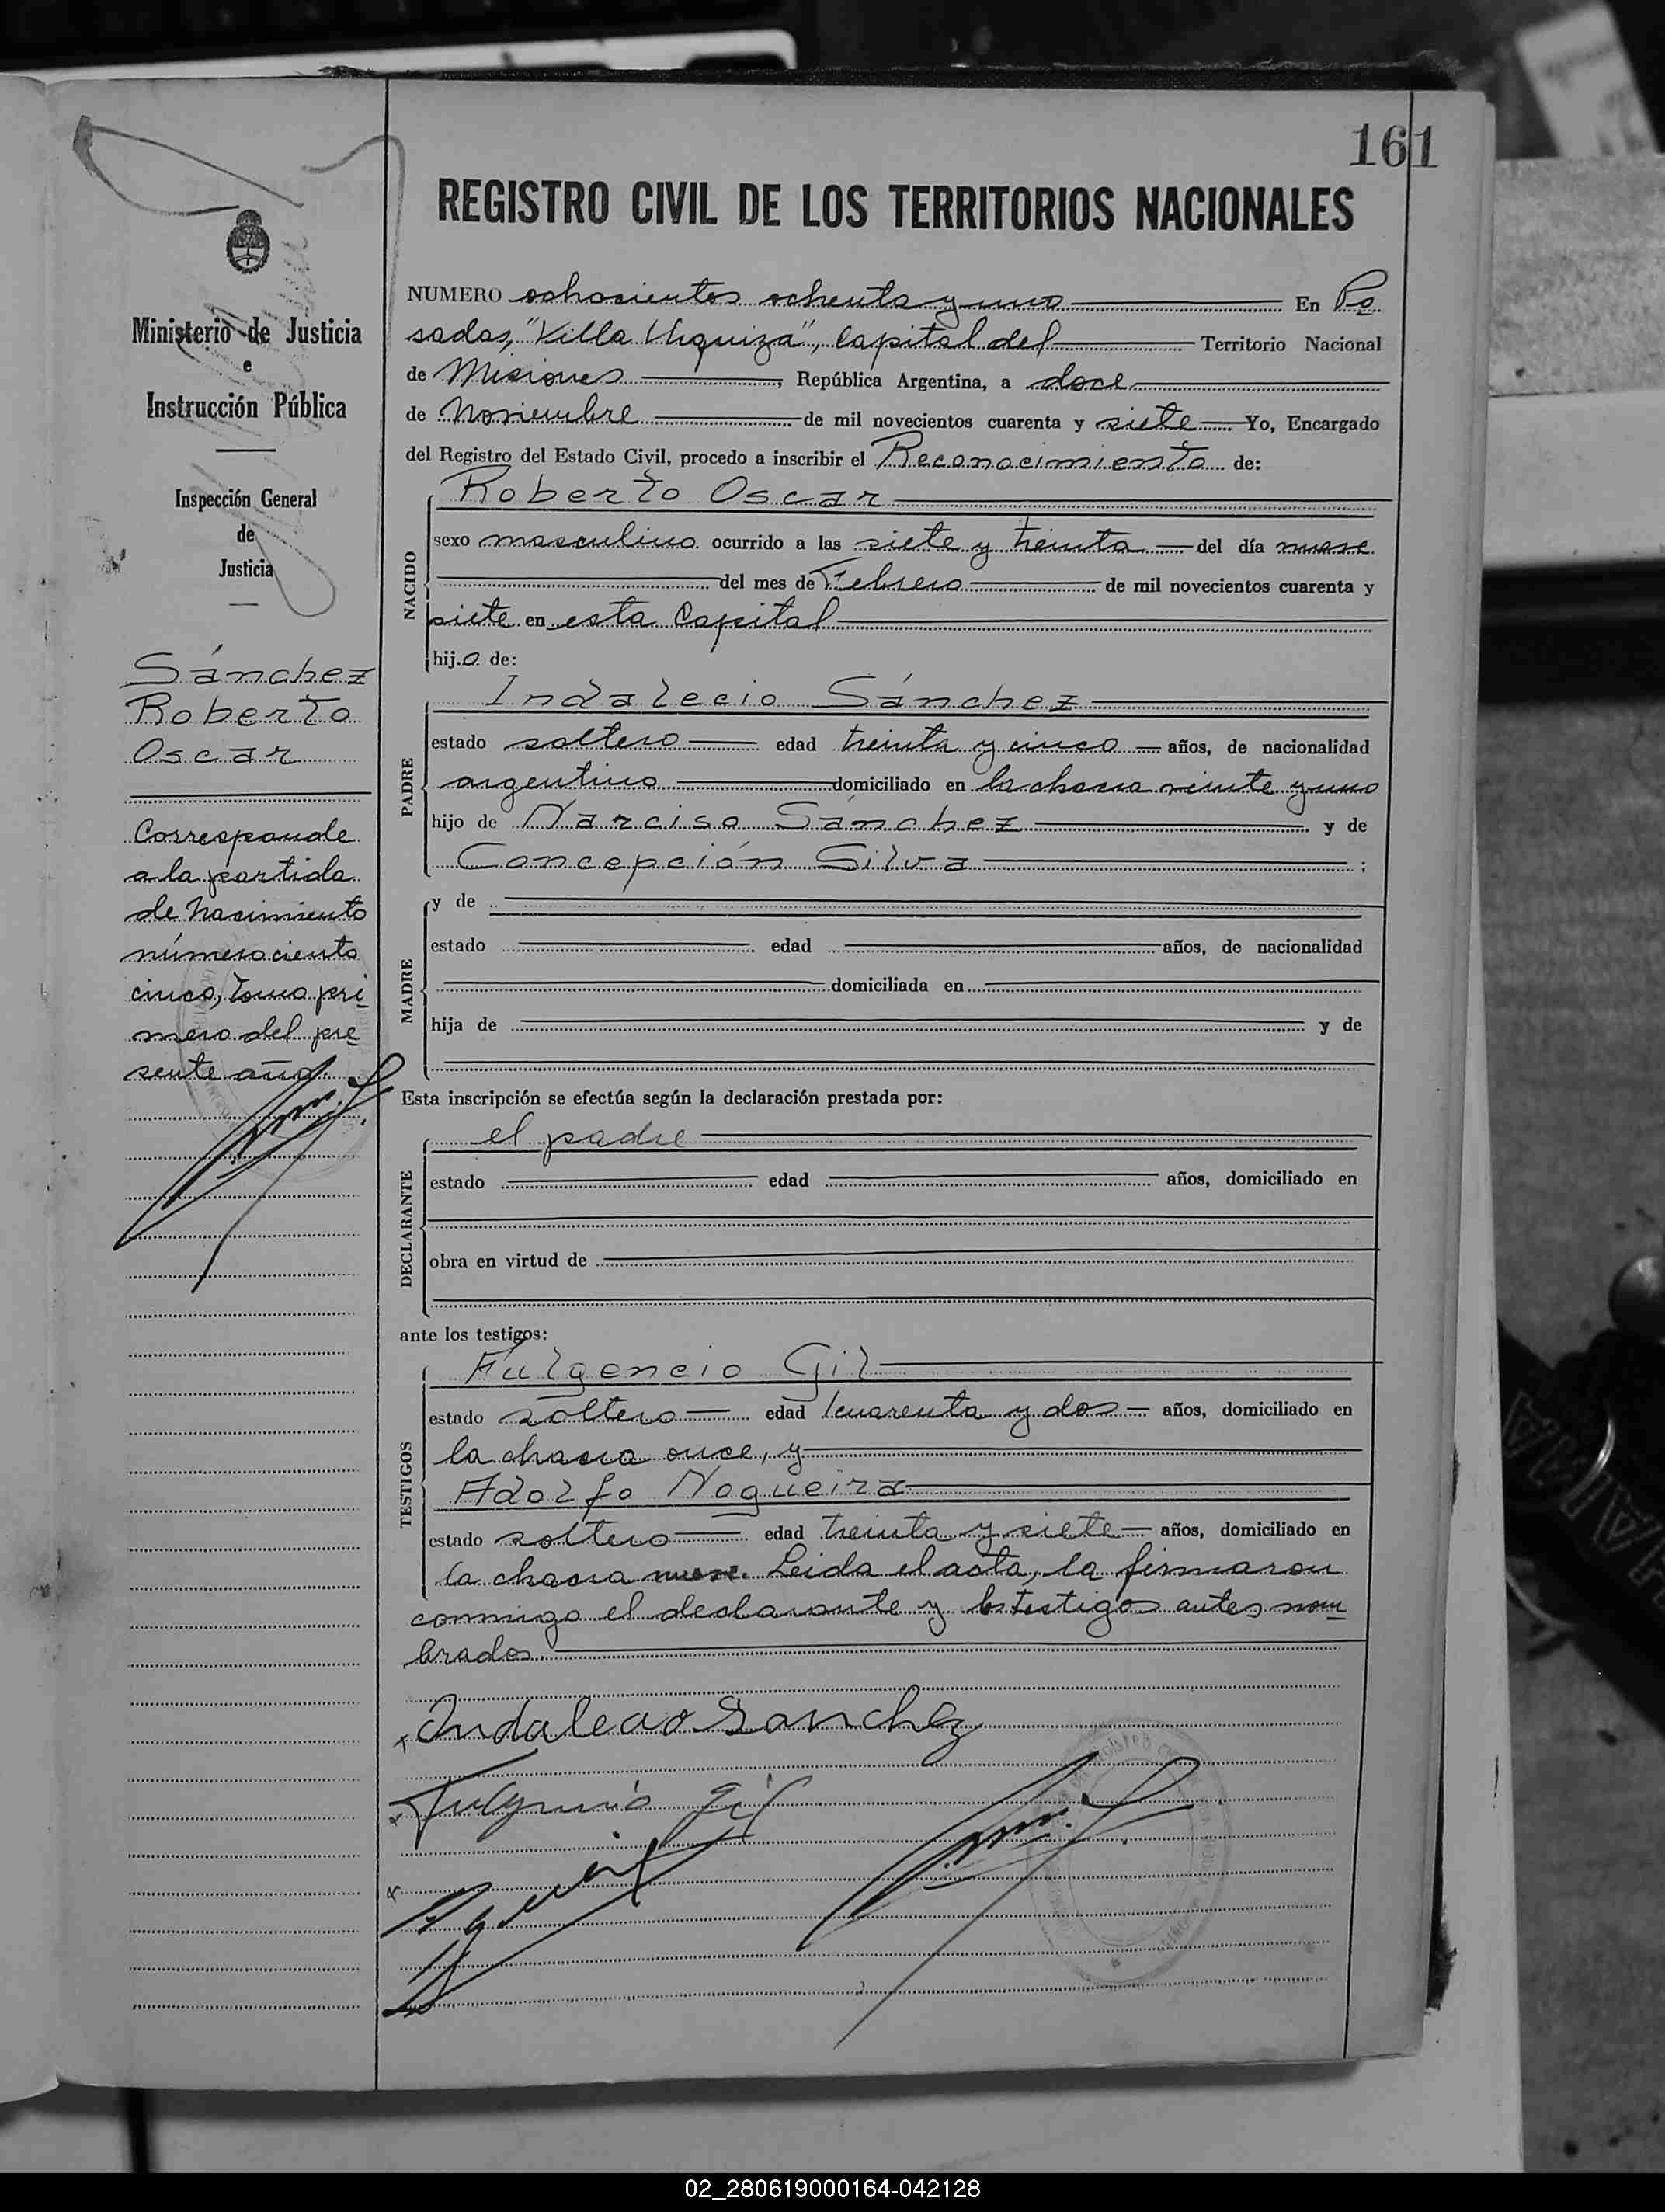 161
REGISTRO CIVIL DE LOS TERRITORIOS NACIONALES
Ministerio de Justicia
e
Instrucción Pública
Inspección General
de
Justicia
Sánchez
Roberto
Oscar
Corresponde
a la partida
de nacimiento
número ciento
cinco, tomo pri
mero del pre
sente año.
NUMERO ochocientos ochenta y uno En Po
sadas, "Villa Urquiza", Capital del Territorio Nacional
de Misiones, República Argentina, a doce
de Noviembre de mil novecientos cuarenta y siete Yo, Encargado
del Registro del Estado Civil, procedo a inscribir el Reconocimiento de:
NACIDO
Roberto Oscar
sexo masculino ocurrido a las siete y treinta del día nueve
del mes de Febrero de mil novecientos cuarenta y
siete en esta Capital
hijo de:
PADRE
Indalecio Sánchez
estado soltero edad treinta y cinco años, de nacionalidad
argentino domiciliado en la chacra veinte y uno
hijo de Narciso Sánchez y de
Concepción Silva ;
MADRE
y de
estado edad años, de nacionalidad
domiciliada en
hija de y de
Esta inscripción se efectúa según la declaración prestada por:
DECLARANTE
el padre
estado edad años, domiciliado en
obra en virtud de
ante los testigos:
TESTIGOS
Fulgencio Gil
estado soltero edad cuarenta y dos años, domiciliado en
la chacra once, y
Adolfo Nogueira
estado soltero edad treinta y siete años, domiciliado en
la chacra nueve. Leida el acta, la firmaron
conmigo el declarante y los testigos antes nom
brados.
Indalecio Sanchez
Fulgencio Gil
02_280619000164-042128